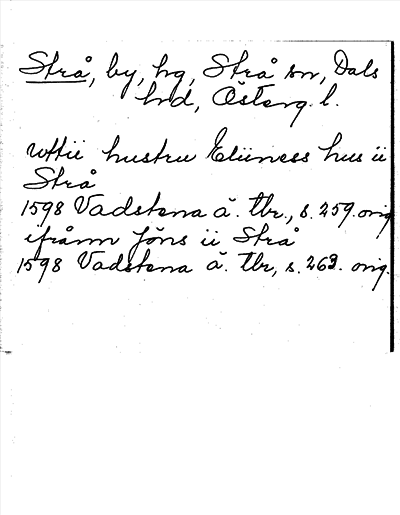 Strå, by, hg, Strå sn, Dals
hrd, Österg. l.
wttii hustru Eliiness hus ii
Strå
1598 Vadstena ä. tbr., s. 259. orig
ifrånn Jöns ii Strå
1598 Vadstena ä. tbr, s. 263. orig.